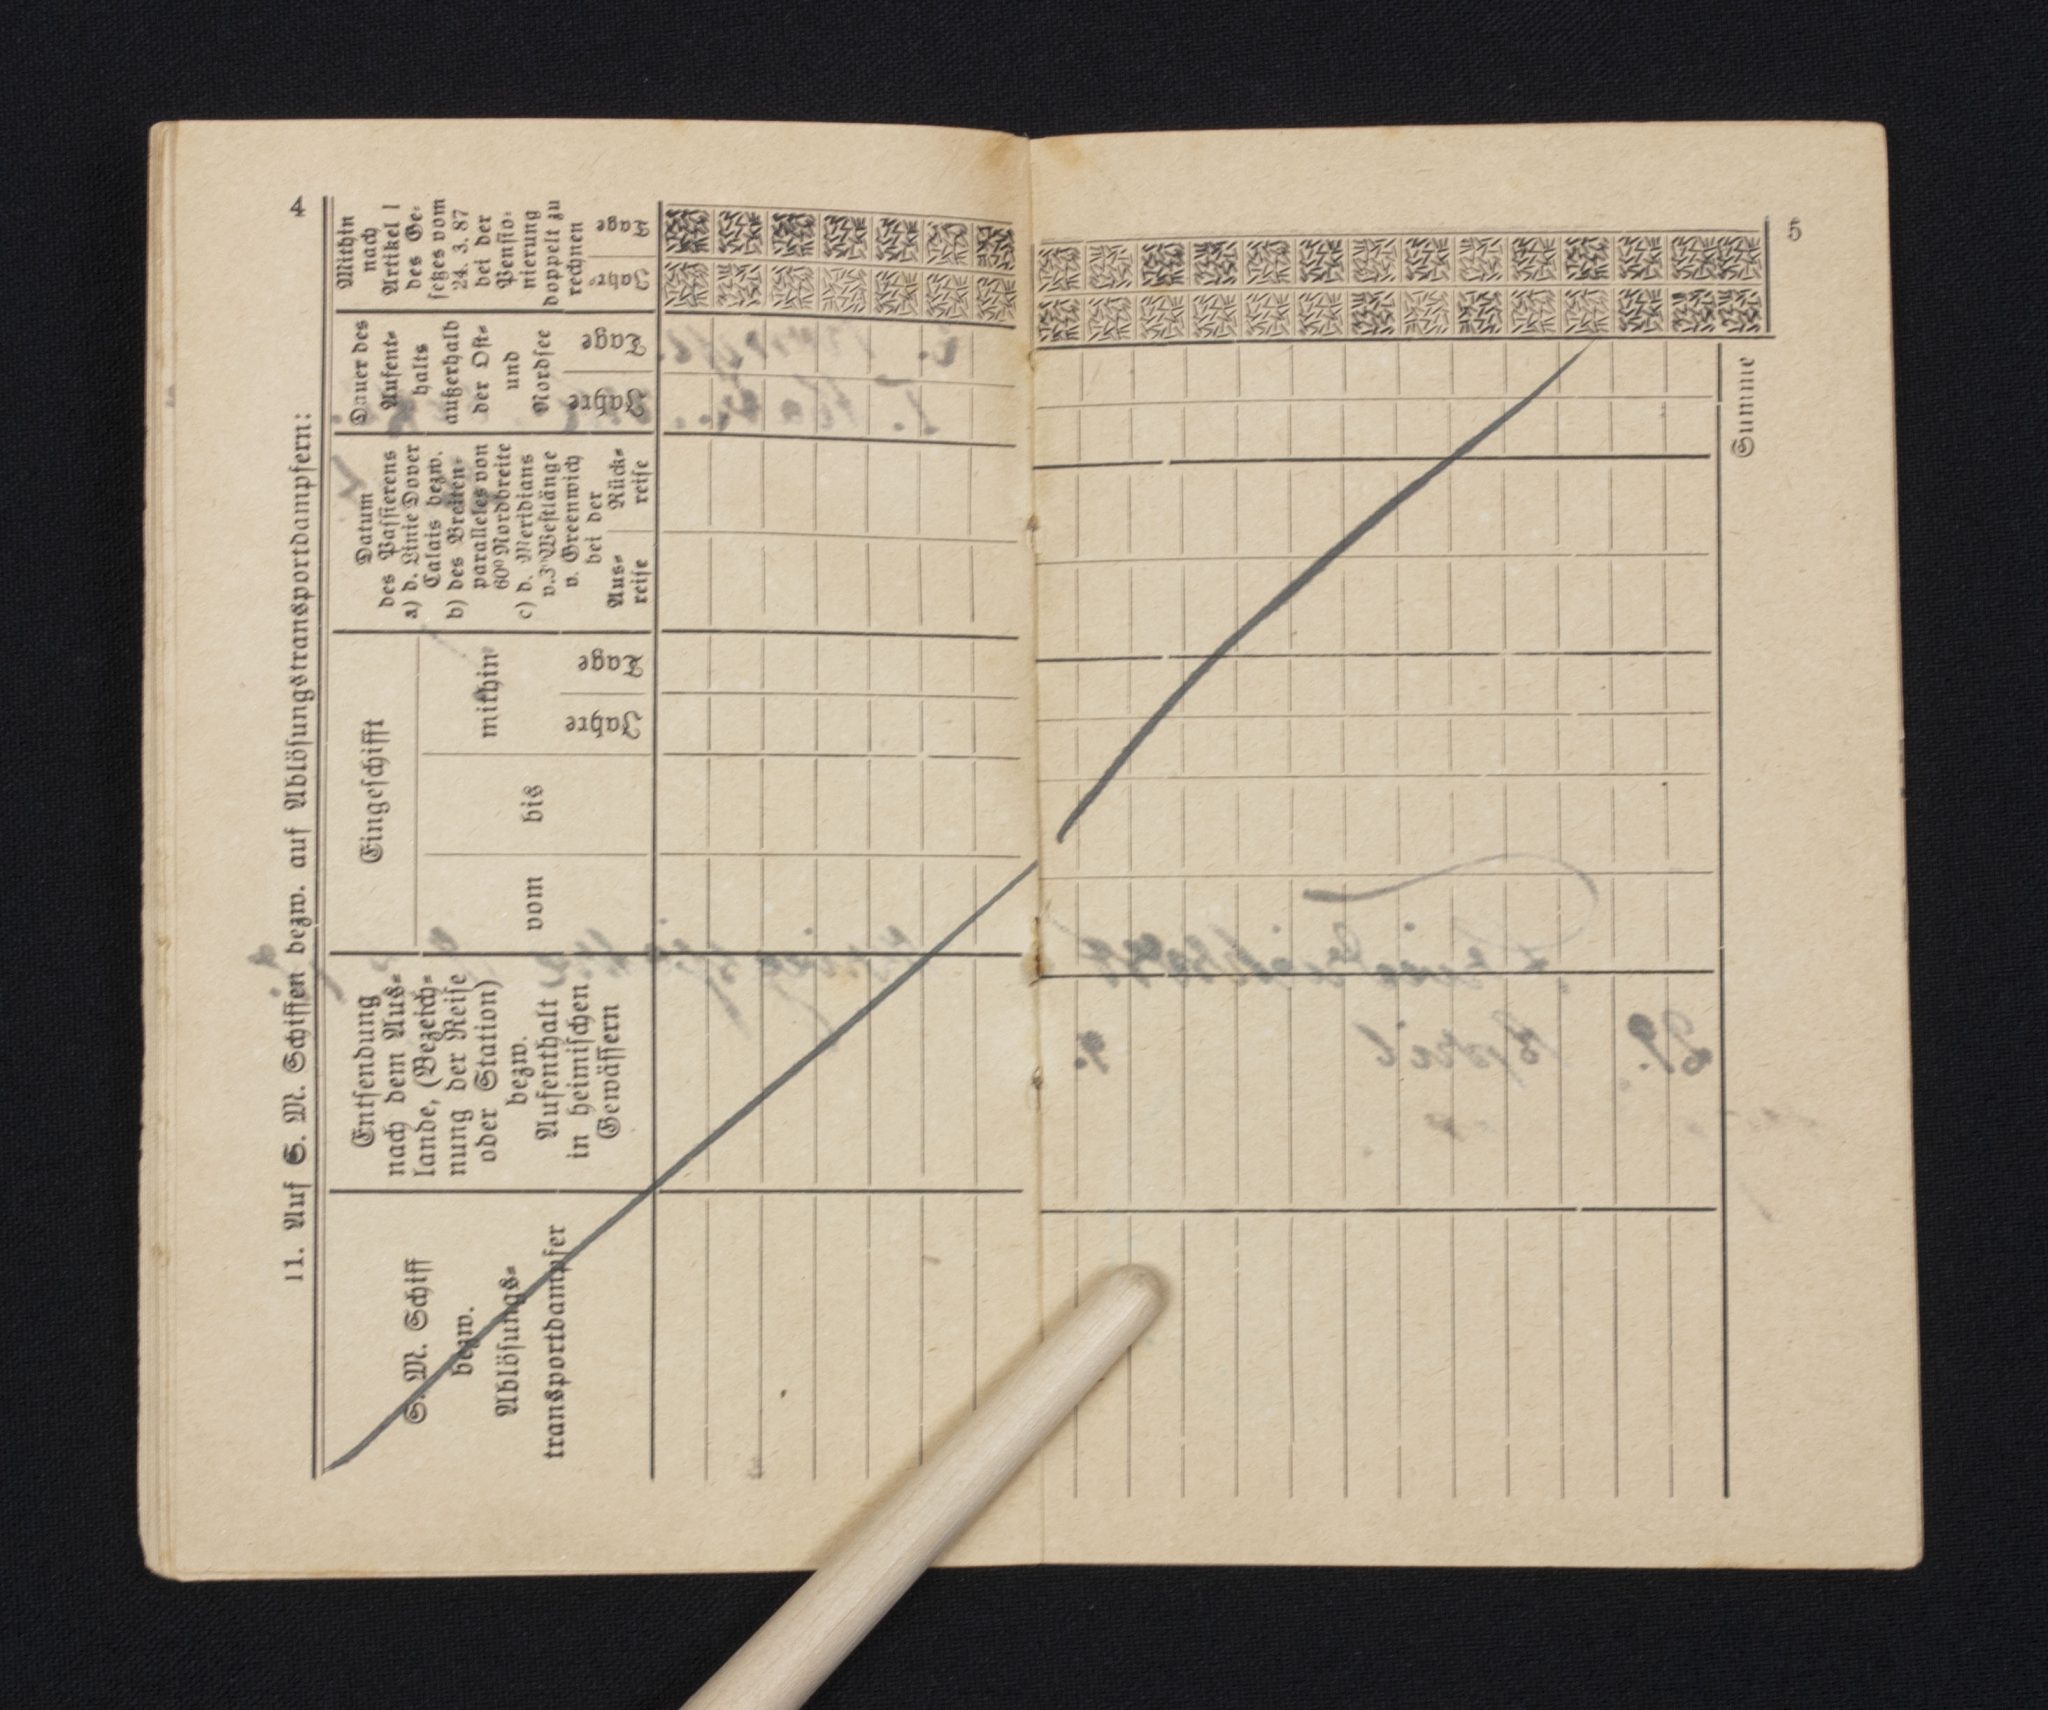 4
11. Auf S. M. Schiffen bezw. auf Ablösungstransportdampfern:
S. M. Schiff
bezw.
Ablösungs-
transportdampfer
Entsendung
nach dem Aus-
lande, (Bezeich-
nung der Reise
oder Station)
bezw.
Aufenthalt
in heimischen
Gewässern
Eingeschifft
vom
bis
mithin
Jahre
Tage
Datum
des Passierens
a) d. Linie Dover
Calais bezw.
b) des Breiten-
paralleles von
60° Nordbreite
c) d. Meridians
v. 3° Westlänge
v. Greenwich
bei der
Aus-
reise
Rück-
reise
Dauer des
Aufent-
halts
außerhalb
der Ost-
und
Nordsee
Jahre
Tage
Mithin
nach
Artikel I
des Ge-
setzes vom
24. 3. 87
bei der
Pensio-
nierung
doppelt zu
rechnen
Jahre
Tage
5
Summe